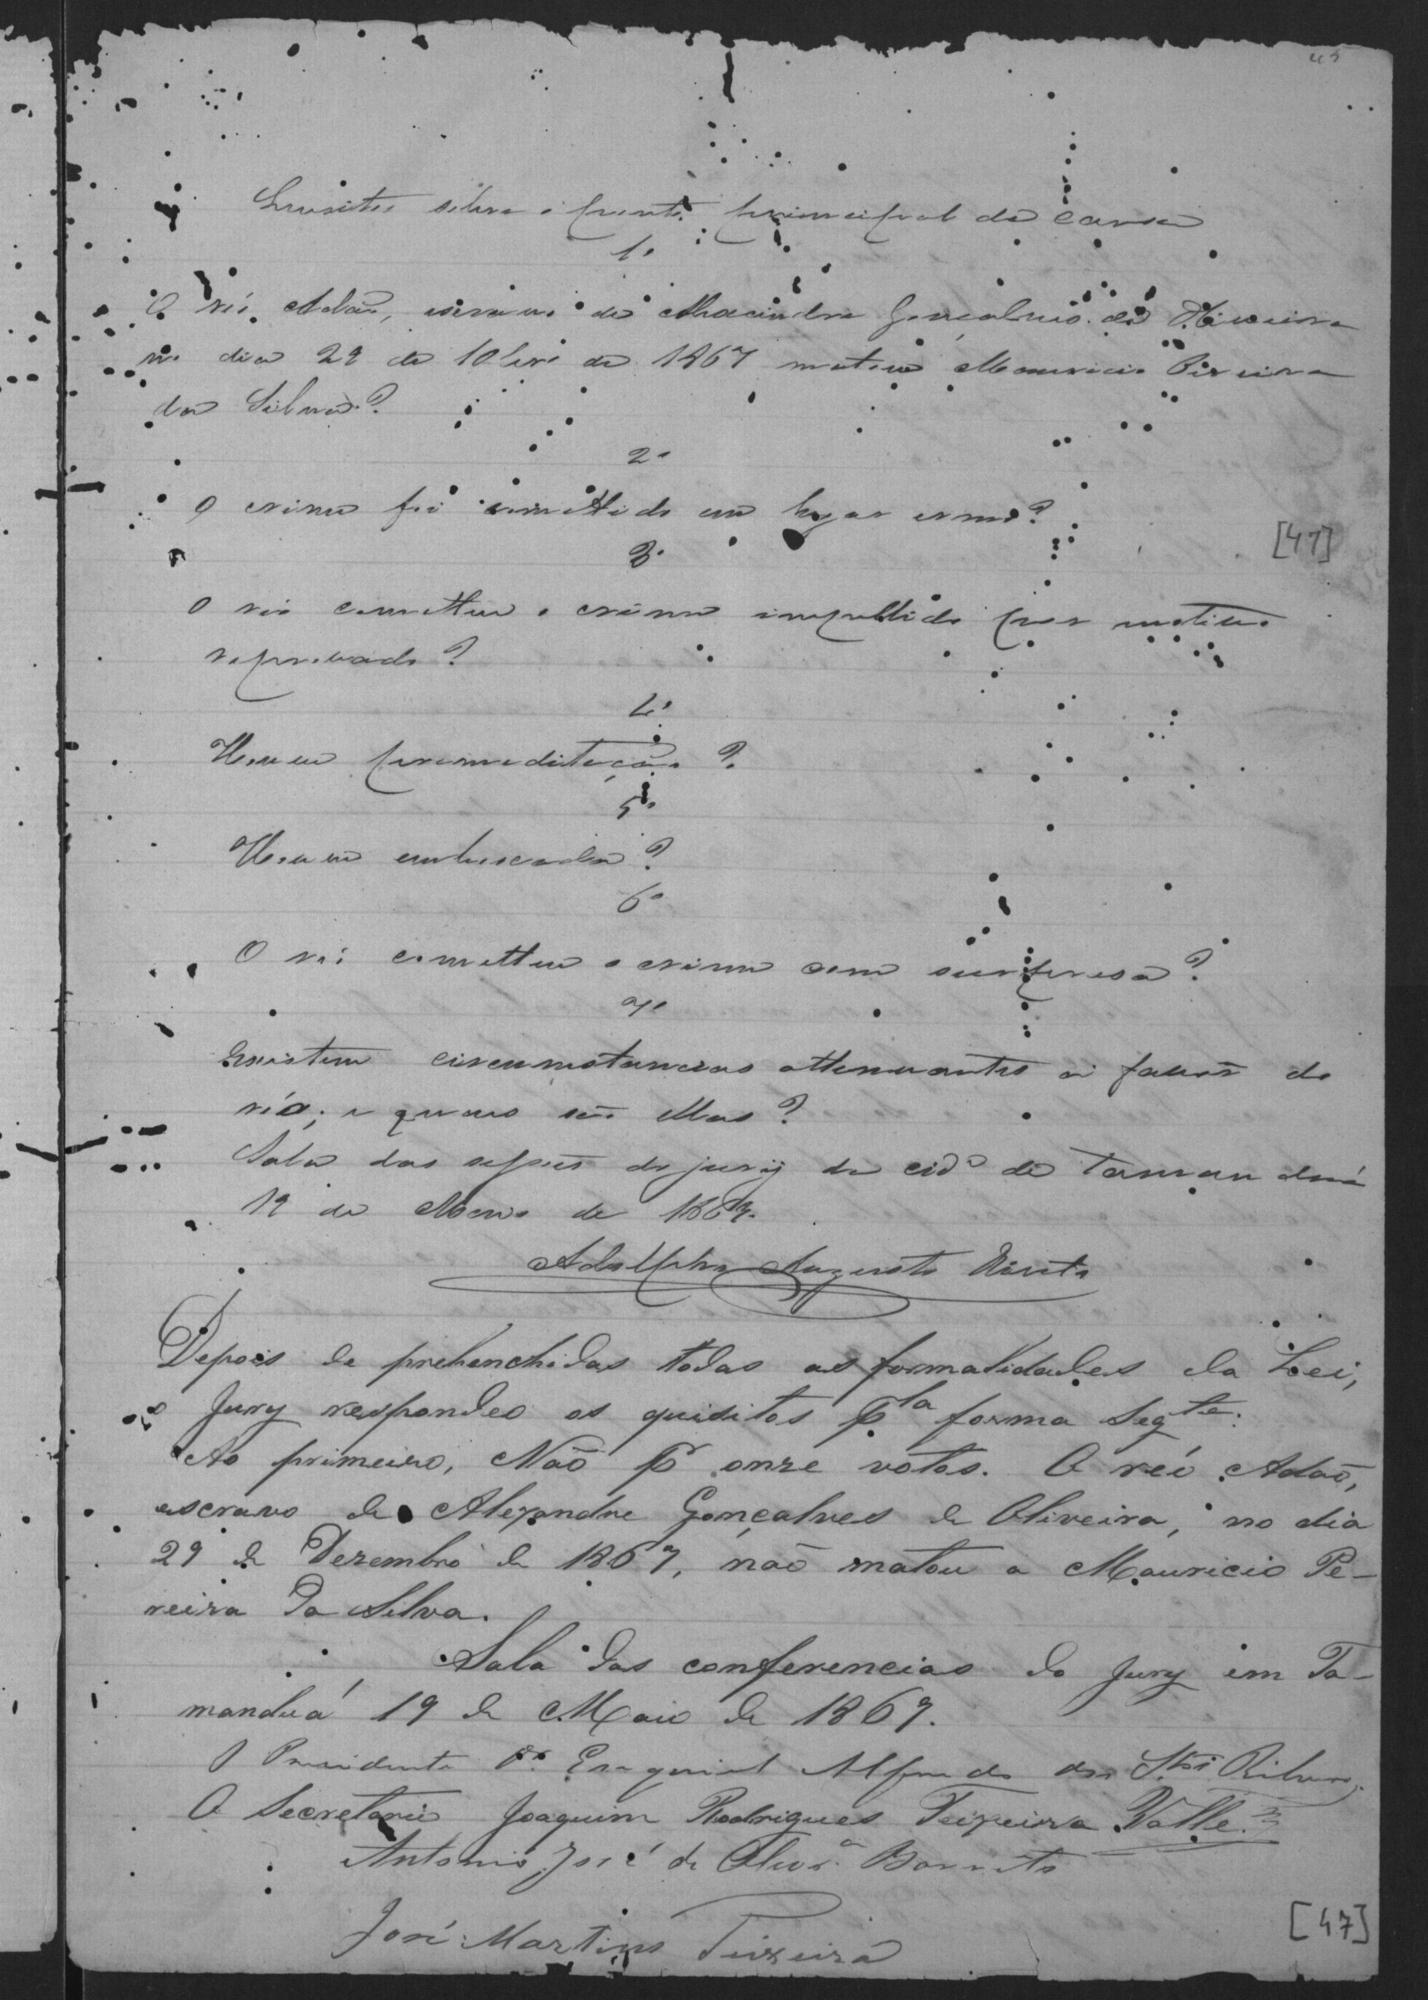 Quesitos sobre o ponto principal da causa
1º
O réo Adão, escravo de Alexandre Gonçalves de Oliveira
no dia 29 de 10brº de 1867 matou Mauricio Pereira
da Silva?
2º
O crime foi comettido em lugar ermo?
3º
O réo cometteu o crime impellido por motivo
reprovado?
4º
Houve premeditação?
5º
Houve emboscada?
6º
O réo cometteu o crime com surpresa?
7º
Existem circumstancias attenuantes a favor do
réo; e quaes são ellas?
Sala das sessões do jury da cidº de Tamanduá
19 de Maio de 1869.
Adolpho Augusto
Depois de prehenchidas todas as formalidades da Lei,
o Jury respondeo os quisitos pla forma segte:
Ao primeiro, Não pr onze votos. O réo Adaõ,
escravo de Alexandre Gonçalves de Oliveira, no dia
29 de Dezembro de 1867, naõ matou a Mauricio Pe-
reira da Silva.
Sala das conferencias do Jury em Ta-
manduá 19 de Maio de 1869.
O Presidente Dr. Ezequiel Alfredo dos Stos Ribeiro
O Secretario Joaquim Rodrigues Teixeira Valle
Antonio José de Olivrª Barreto
José Martins Teixeira
[47]
[47]